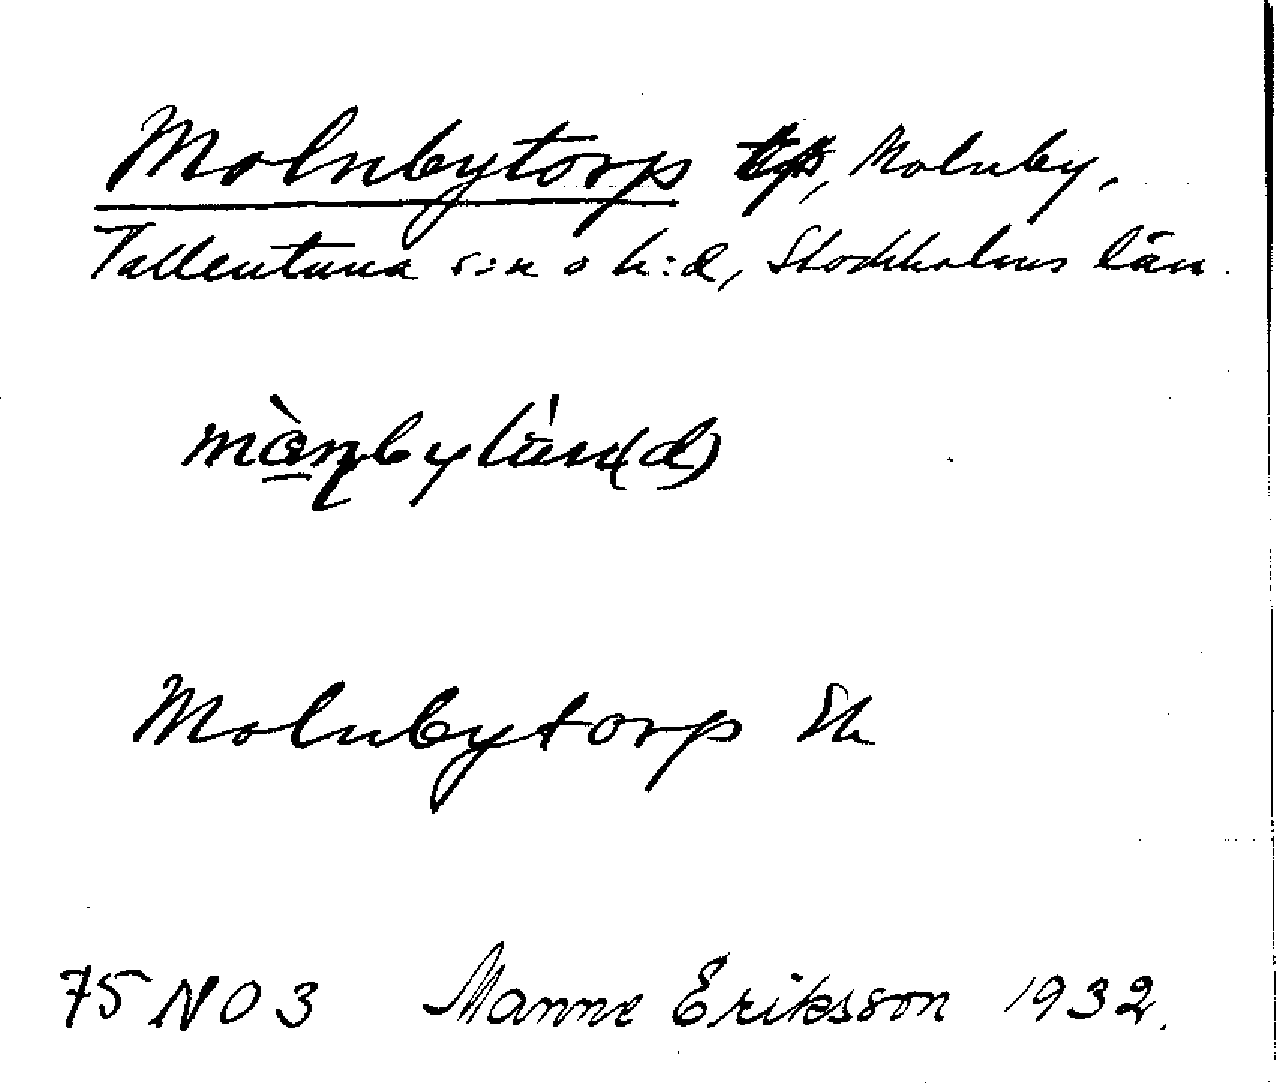 Molnbytorp tp, Molnby,
Vallentuna s:n o h:d, Stockholms län.
Molnbytorp Sk
75 NO 3 Manne Eriksson 1932.